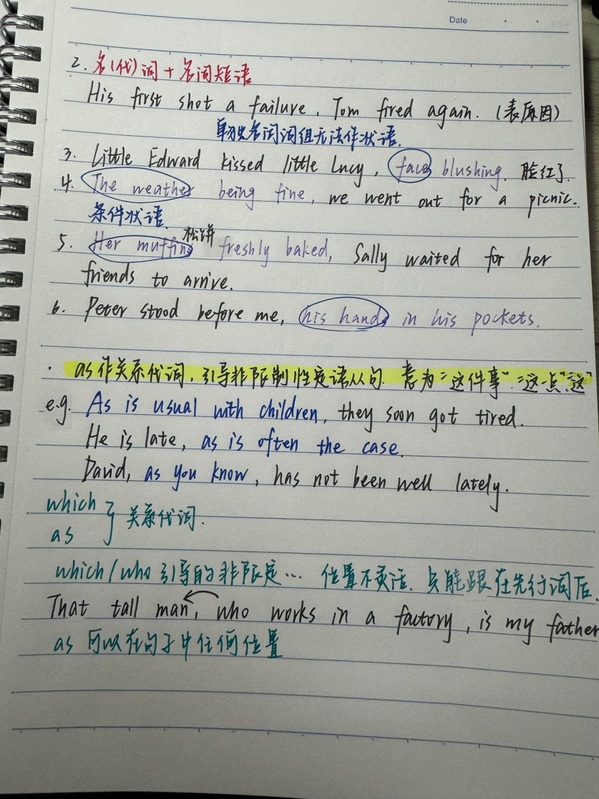 Date
2. 名(代)词 + 名词短语
His first shot a failure, Tom fired again. (表原因)
单独名词词组无法作状语.
3. Little Edward kissed little Lucy, face blushing. 脸红了.
4. The weather being fine, we went out for a picnic.
条件状语. 松饼
5. Her muffins freshly baked, Sally waited for her
friends to arrive.
6. Peter stood before me, his hands in his pockets.
· as作关系代词, 引导非限制性定语从句. 意为"这件事".“这一点”“这”
e.g. As is usual with children, they soon got tired.
He is late, as is often the case.
David, as you know, has not been well lately.
which
as } 关系代词.
which/who 引导的非限定… 位置不灵活. 只能跟在先行词后.
That tall man, who works in a factory, is my father
as 可以在句子中任何位置